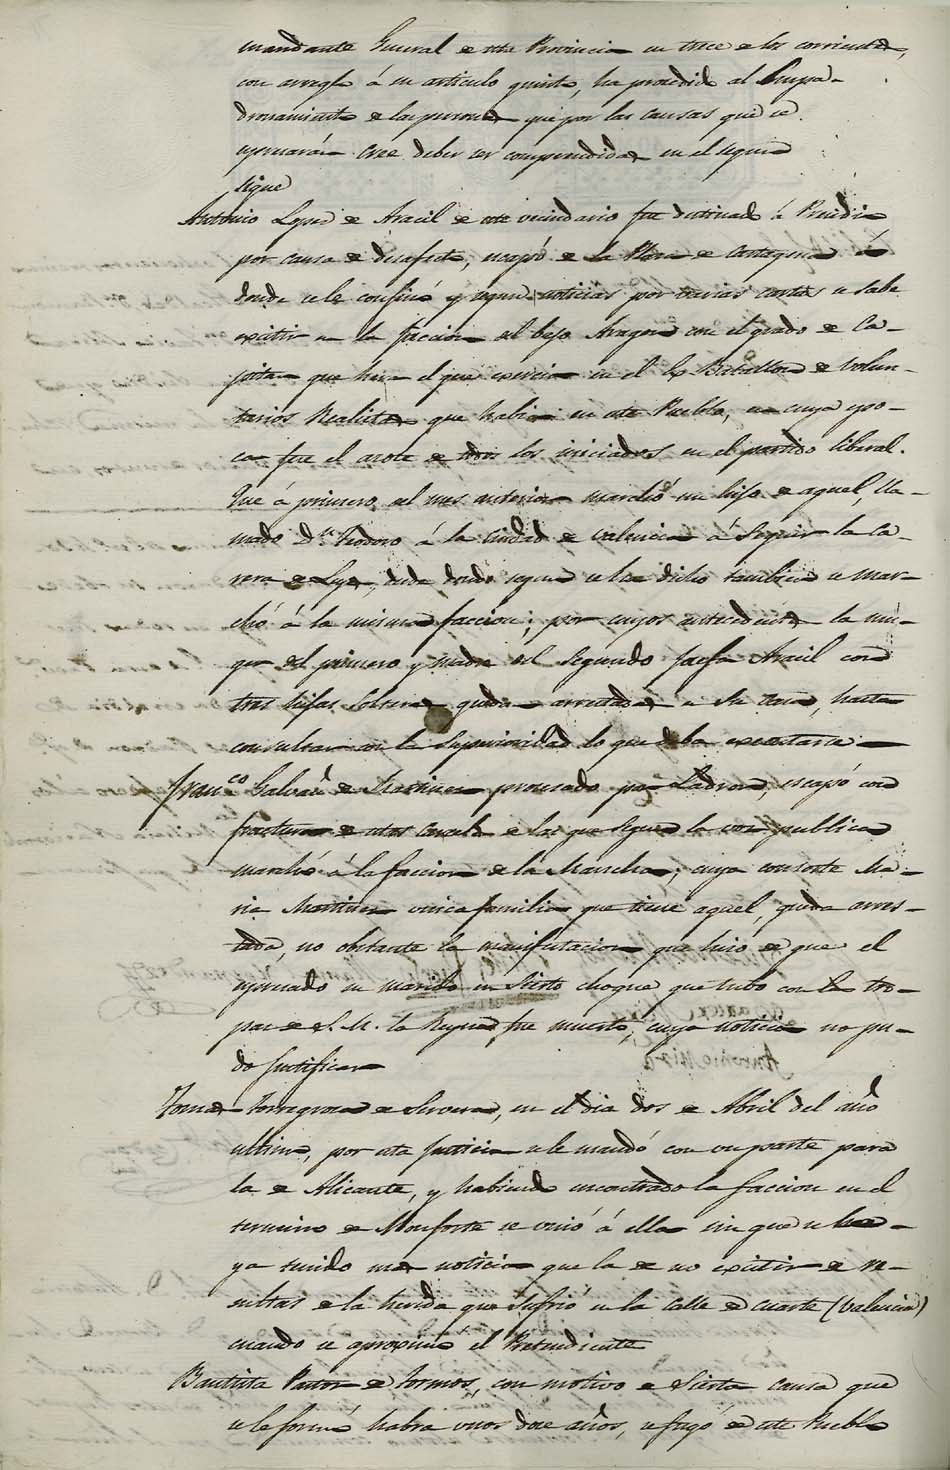 mandante General de esta Provincia en trece de los corrientes,
con arreglo á su articulo quinto, ha procedido al Empa-
dronamiento de las personas que por las causas que se
espresarán cree deber ser comprendidas en el segun
sigue
Antonio Lopez de Aracil de este vecindario fue destinado á Presidio
por causa de desafecto, escapó de la Plaza de Cartagena á
donde se le confinó y segun noticias por varias cartas se sabe
existir en la faccion del bajo Aragon con el grado de Ca-
pitan que hera el que exercia en el Ex Batallon de Volun-
tarios Realistas que habia en este Pueblo, en cuya epo-
ca fue el azote de todos los iniciados en el partido liberal.
Que á primero del mes anterior marchó un hijo de aquel, lla-
mado Dn. Teodoro á la Ciudad de Valencia á Seguir la Ca-
rrera de Leyes, desde donde segun se ha dicho tambien se mar-
chó á la misma faccion; por cuyos antecedentes la mu-
ger del primero y madre del Segundo Josefa Aracil con
tres hijas Solteras quedan arrestadas en su Casa, hasta
consultar con la Superioridad lo que deba executarse
Franco. Galvañ de Martinez procesado por Ladron, escapó con
fractura de estas Carceles de las que Segun la voz publica
marchó á la faccion de la Mancha; cuya consorte Ma-
ria Martinez unica familia que tiene aquel, queda arres-
tada, no obstante la manifestacion que hizo de que el
espresado su marido en Sierto choque que tubo con las tro-
pas de S. M. la Reyna fue muerto, cuya noticia no pu-
do Justificar
Tomas Torregrosa de Servera, en el dia dos de Abril del año
ultimo, por esta Justicia se le mandó con un parte para
la de Alicante, y habiendo encontrado la faccion en el
termino de Monforte se unió á ella sin que se ha-
ya tenido mas noticia que la de no existir de re-
sultas de la herida que Sufrió en la Calle de Cuarte (Valencia)
cuando se aproximó el Pretendiente
Bautista Pastor de Tormos, con motivo de Sierta causa que
se le formó habra unos doce años, se fugó de este Pueblo